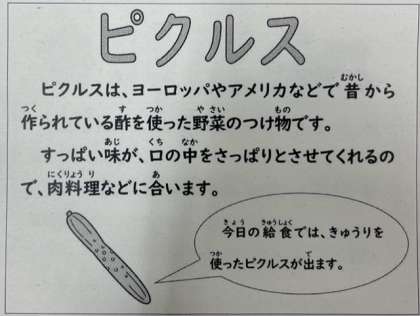 ピクルス
ピクルスは、ヨーロッパやアメリカなどで昔から
作られている酢を使った野菜のつけ物です。
すっぱい味が、口の中をさっぱりとさせてくれるの
で、肉料理などに合います。
今日の給食では、きゅうりを
使ったピクルスが出ます。